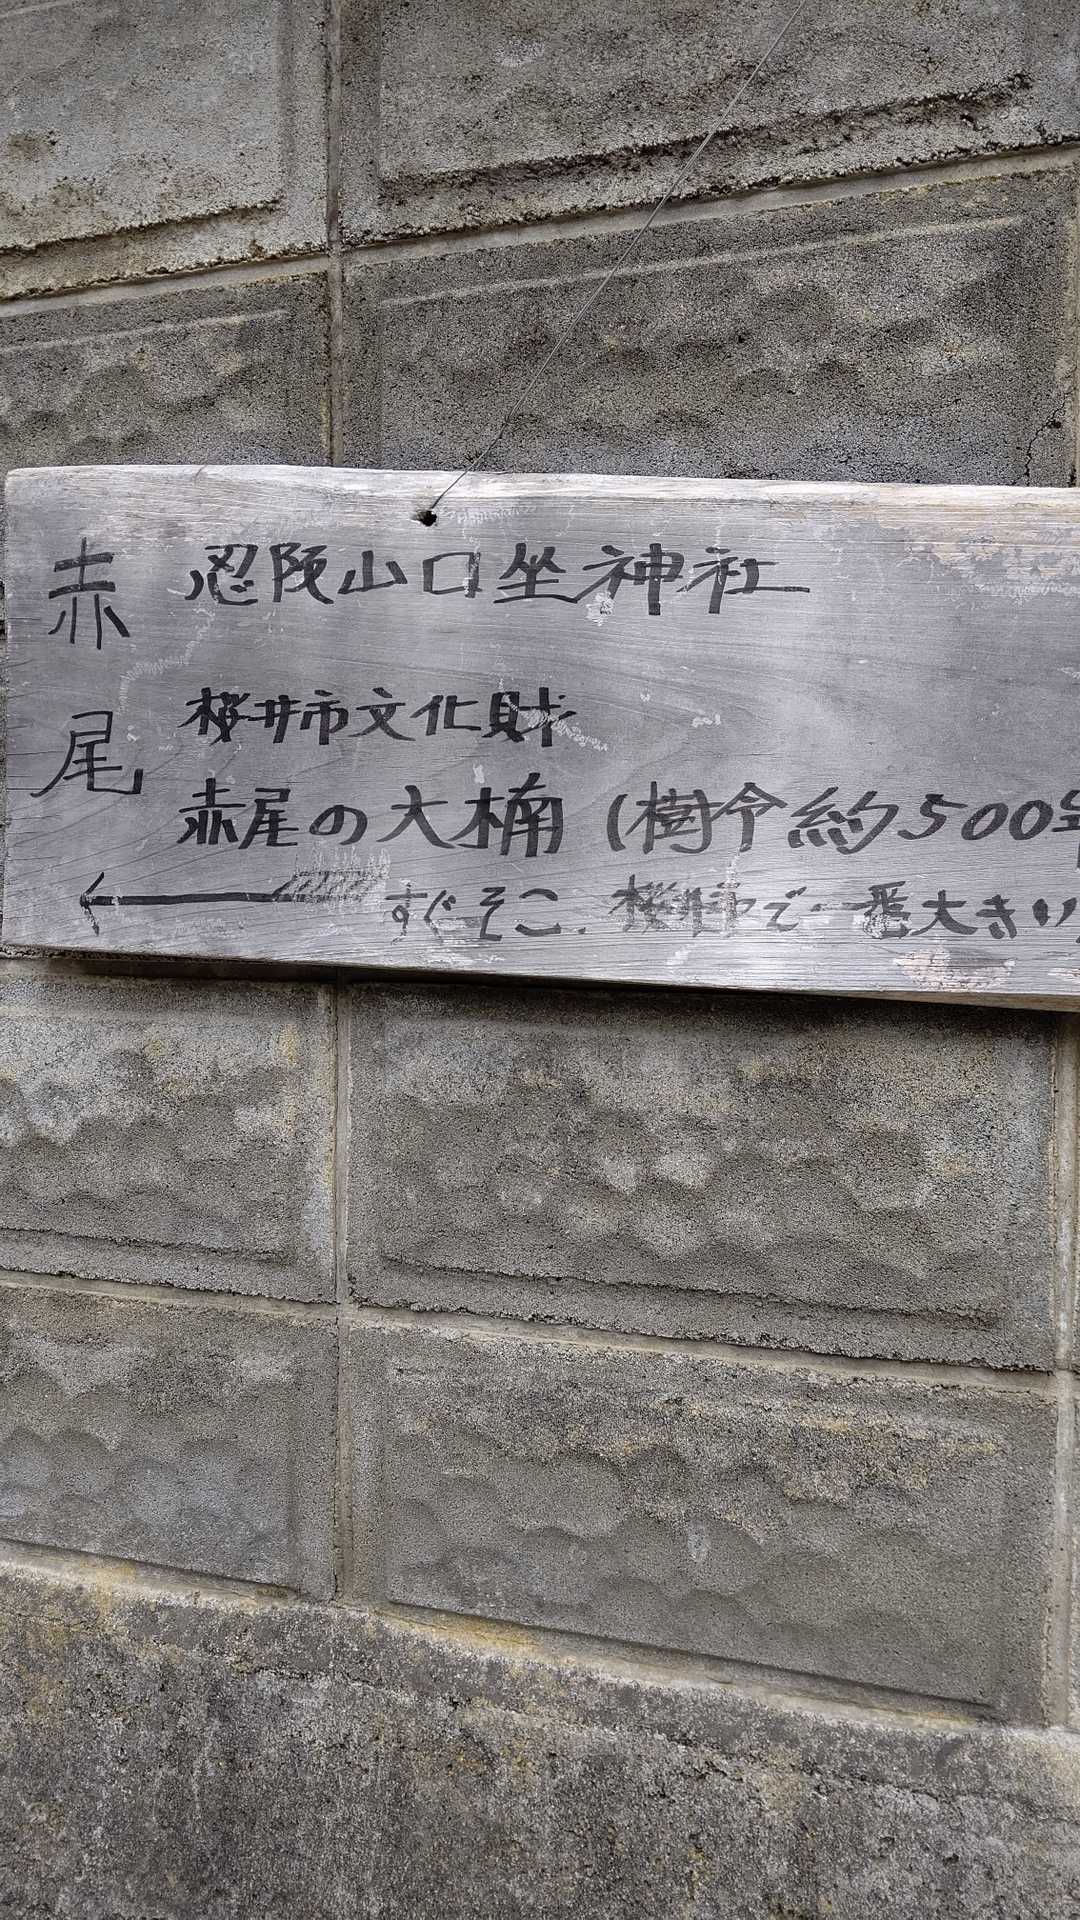 赤尾
忍阪山口坐神社
桜井市文化財
赤尾の大楠(樹令約500年
← すぐそこ. 桜井市で一番大きい